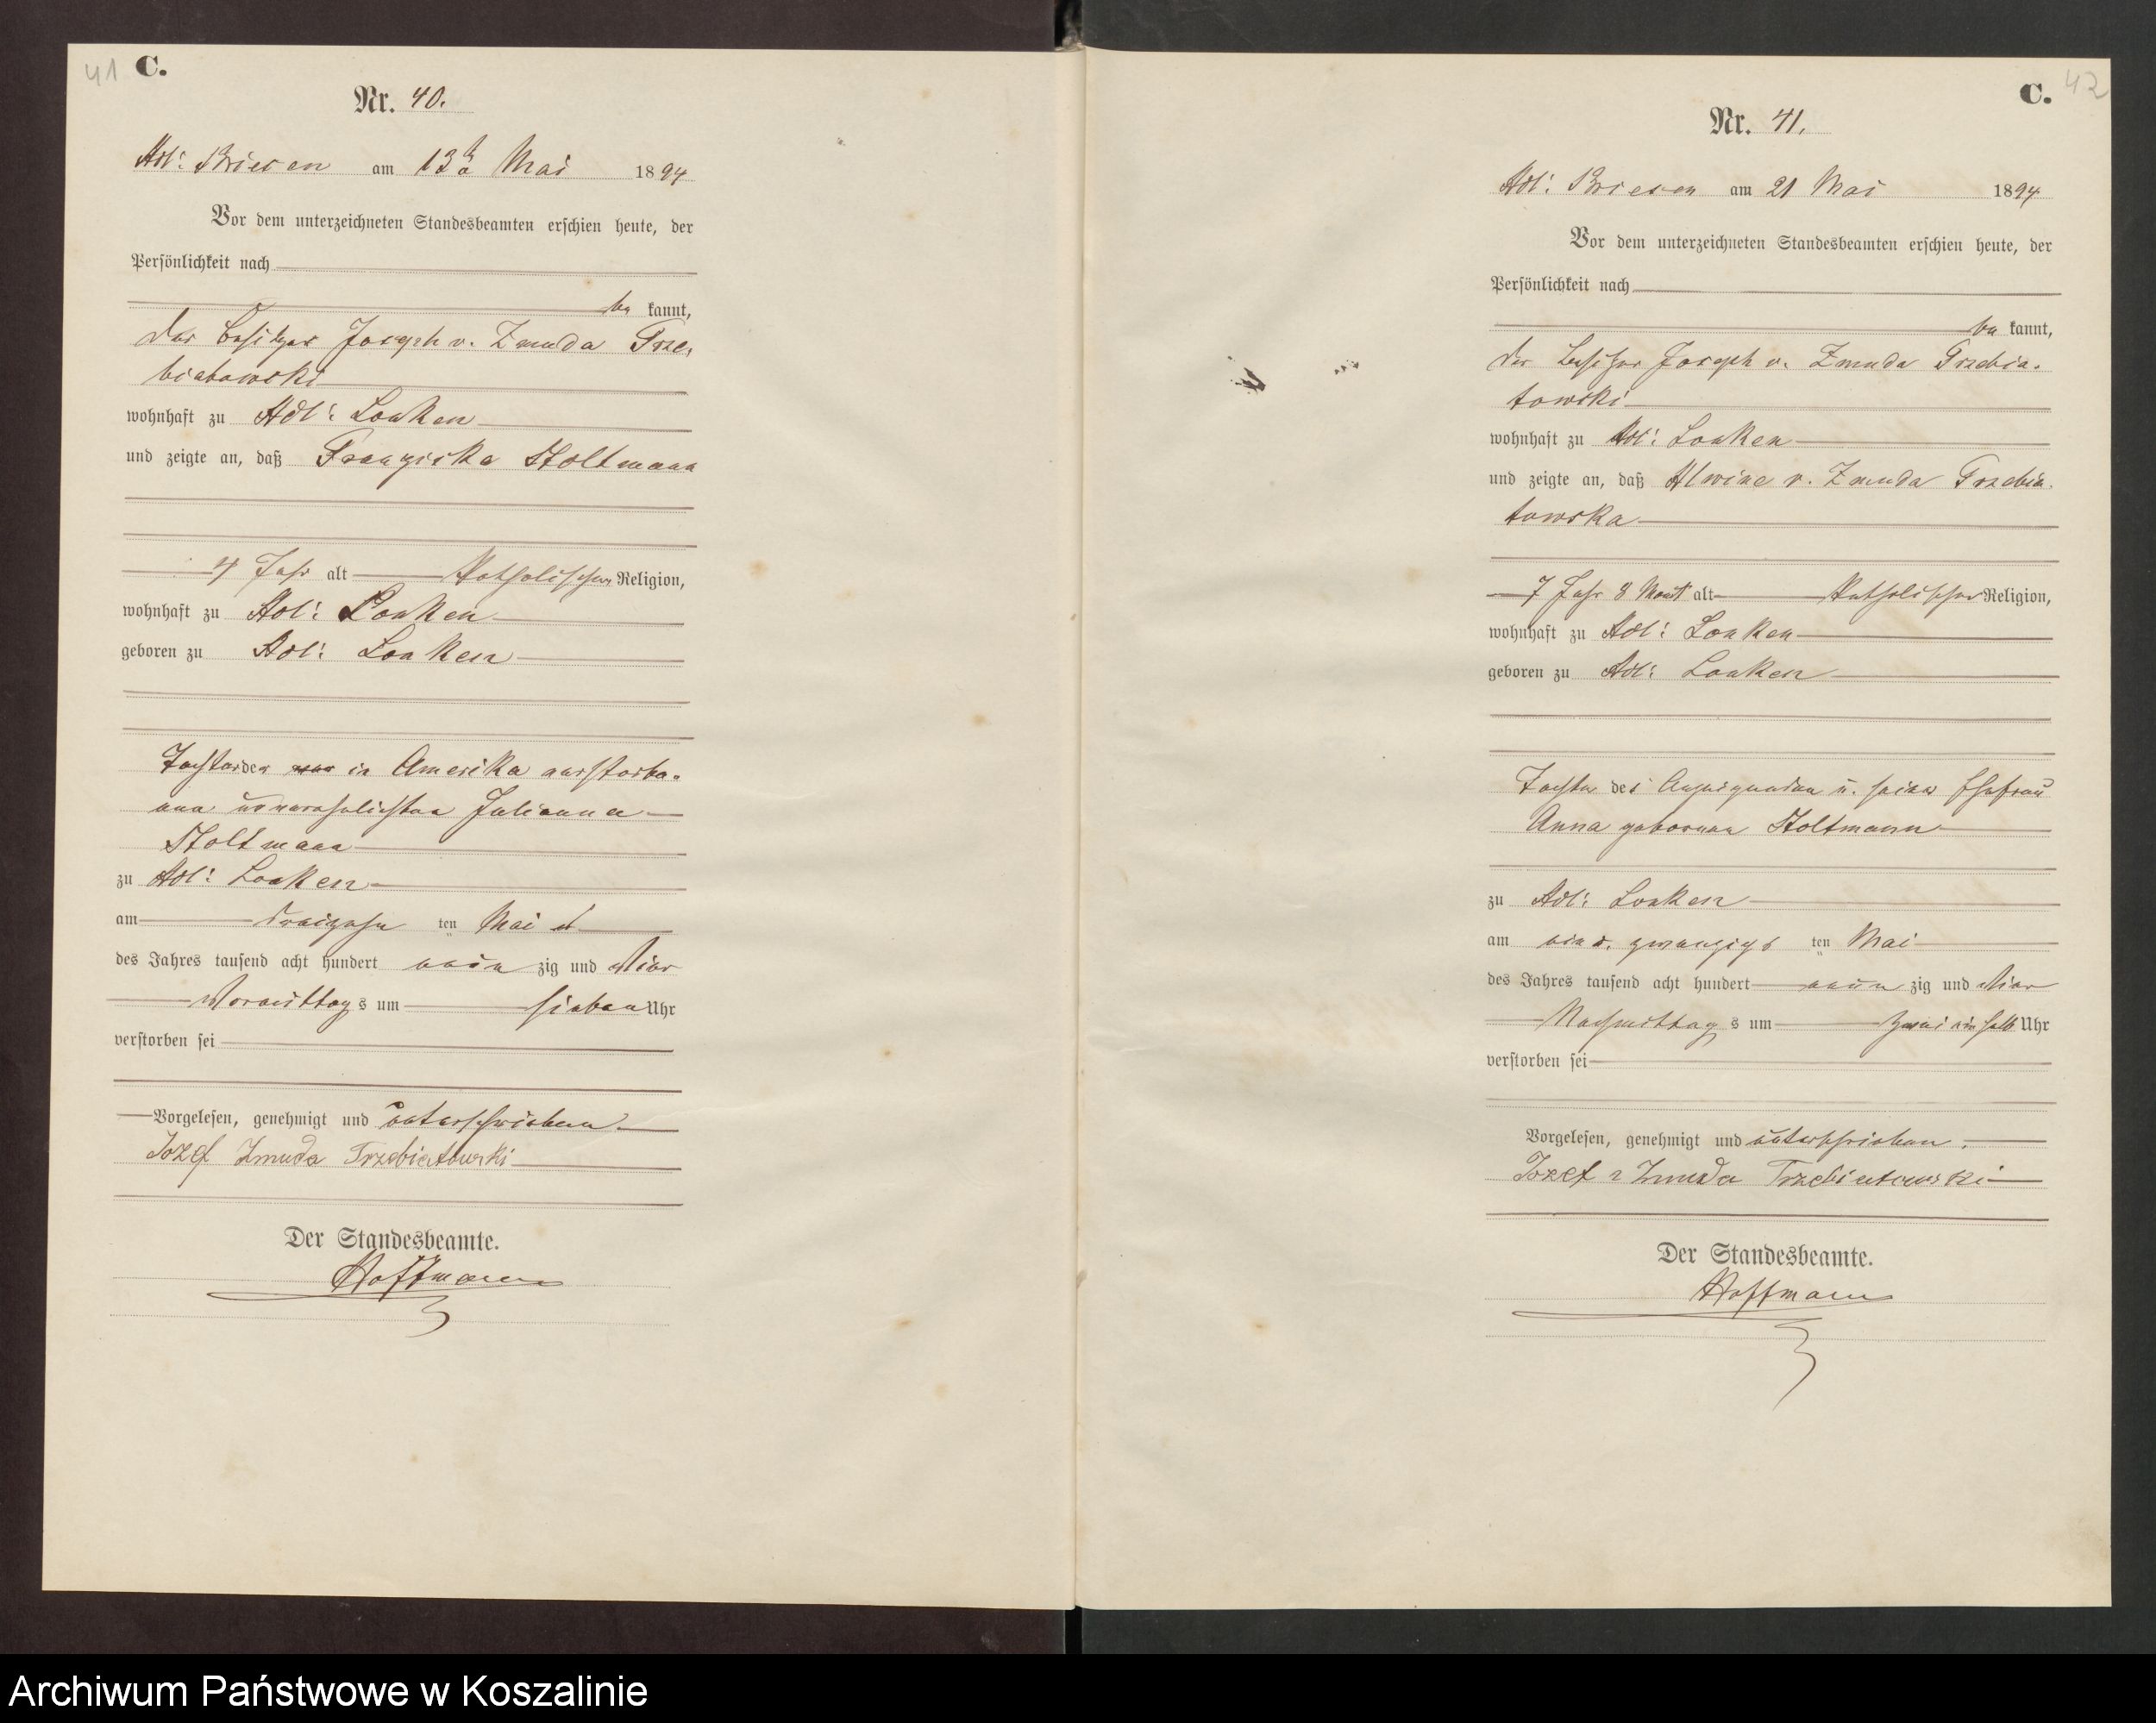 41 C.
Nr. 40.
Adl: Briesen am 13t Mai 1894
Vor dem unterzeichneten Standesbeamten erschien heute, der
Persönlichkeit nach
be kannt,
der Besitzer Joseph v. Zmuda Trze,
biatowski
wohnhaft zu Adl: Lonken
und zeigte an, daß Franziska Stoltmann
4 Jahr alt Katholischer Religion,
wohnhaft zu Adl: Lonken
geboren zu Adl: Lonken
Tochter der in Amerika verstorbe-
nen unverehelichten Julianna
Stoltmann
zu Adl: Lonken
am dreizehn ten Mai
des Jahres tausend acht hundert neun zig und vier
Vormittag s um sieben Uhr
verstorben sei
Vorgelesen, genehmigt und unterschrieben.
Jozef Zmuda Trzebiatowski
Der Standesbeamte.
Hoffmann
C. 42
Nr. 41.
Adl: Briesen am 21 Mai 1894
Vor dem unterzeichneten Standesbeamten erschien heute, der
Persönlichkeit nach
be kannt,
der Besitzer Joseph v. Zmuda Trzebia-
towski
wohnhaft zu Adl: Lonken
und zeigte an, daß Alwine v. Zmuda Trzebia-
towska
7 Jahr 8 Monat alt Katholischer Religion,
wohnhaft zu Adl: Lonken
geboren zu Adl: Lonken
Tochter des Anzeigenden u. seiner Ehefrau
Anna geborenen Stoltmann
zu Adl: Lonken
am ein u. zwanzigs ten Mai
des Jahres tausend acht hundert neun zig und vier
Nachmittag s um zwei ein halb Uhr
verstorben sei
Vorgelesen, genehmigt und unterschrieben.
Jozef v Zmuda Trzebiatowski
Der Standesbeamte.
Hoffmann
Archiwum Państwowe w Koszalinie